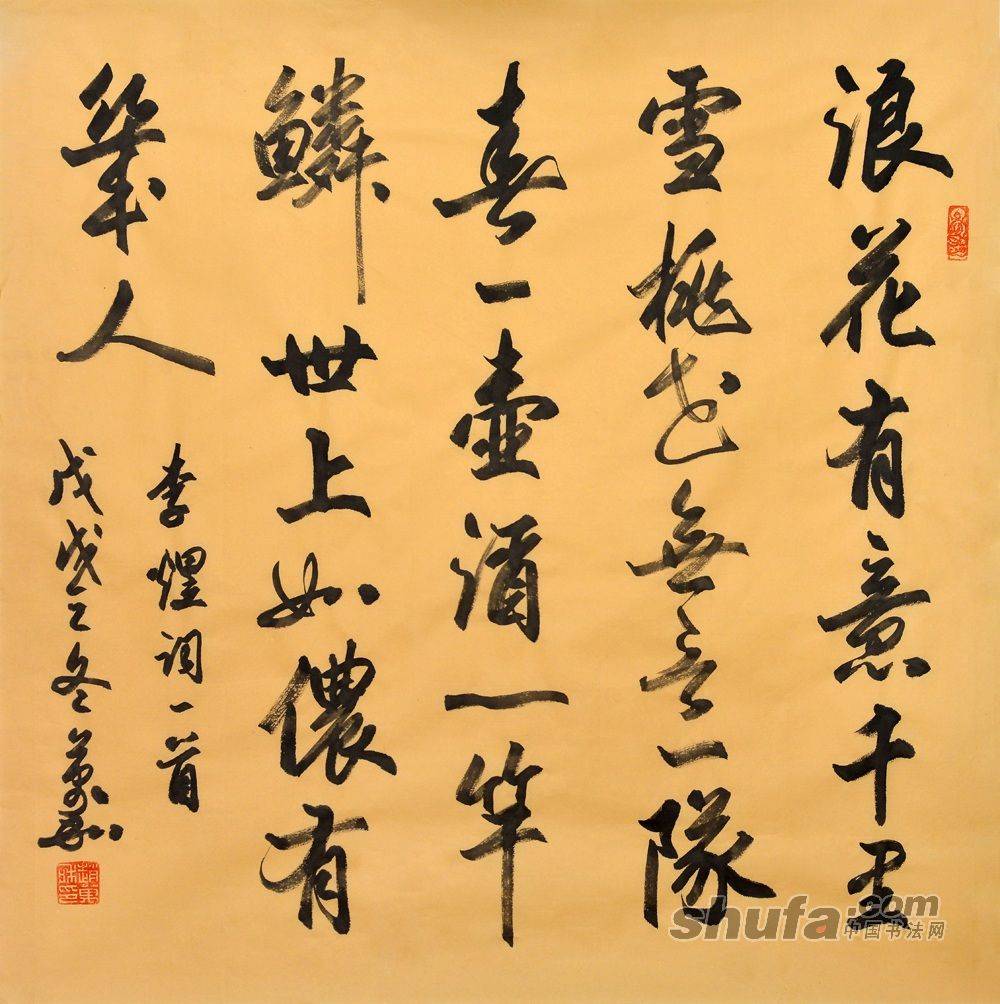 浪花有意千里
雪桃花無言一隊
春一壺酒一竿
鱗世上如儂有
幾人
李煜詞一首
戊戌之冬
shufa.com
中国书法网